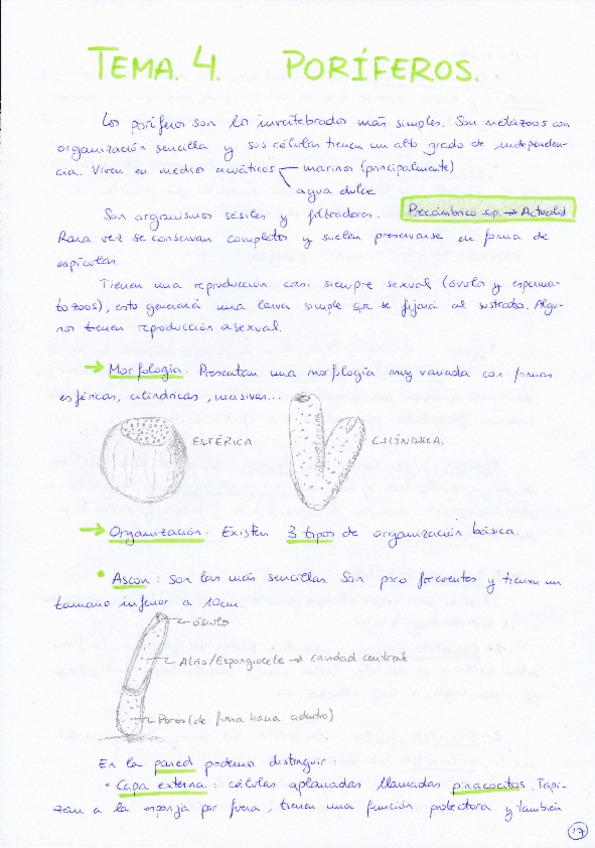 TEMA. 4. PORÍFEROS.
Los poríferos son los invertebrados más simples. Son metazoos con
organización sencilla y sus células tienen un alto grado de independen-
cia. Viven en medios acuáticos marinos (principalmente)
agua dulce
Son organismos sésiles y filtradores. Precámbrico sup. → Actualid
Rara vez se conservan completos y suelen preservarse en forma de
espículas.
Tienen una reproducción casi siempre sexual (óvulos y esperma-
tozoos), esto generará una larva simple que se fijará al sustrato. Algu-
nos tienen reproducción asexual.
→ Morfología. Presentan una morfología muy variada con formas
esféricas, cilíndricas, masivas...
ESFÉRICA
CILÍNDRICA.
→ Organización: Existen 3 tipos de organización básica.
• Ascon: Son las más sencillas. Son poco frecuentes y tienen un
tamaño inferior a 10cm.
ósculo
Atrio/Espongiocele → cavidad central
Poros (de fuera hacia adentro)
En la pared podemos distinguir:
• Capa externa: células aplanadas llamadas pinacocitos. Tapi-
zan a la esponja por fuera, tienen una función protectora y también
17